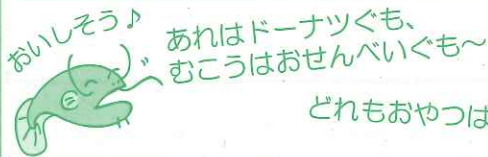 おいしそう♪
あれはドーナツぐも、
むこうはおせんべいぐも~
どれもおやつは